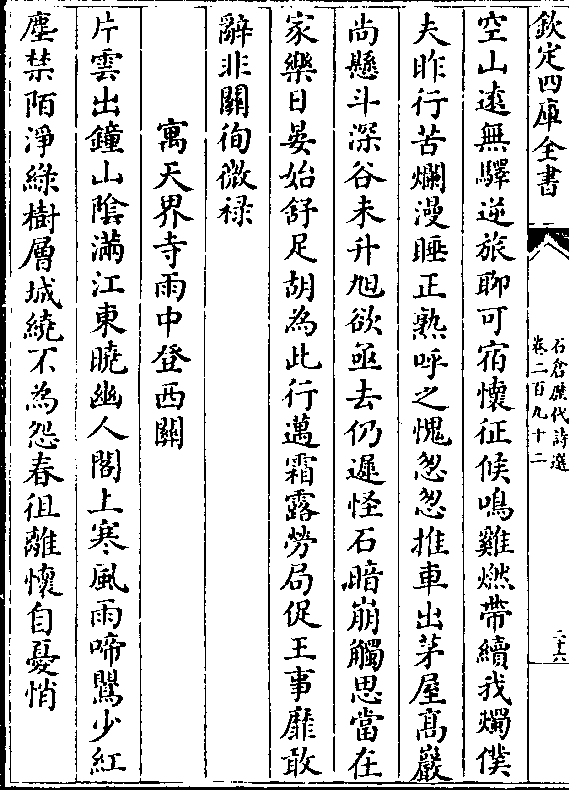 欽定四庫全書
石倉歷代詩選
卷二百九十二
二十六
空山遠無驛逆旅聊可宿懷征候鳴雞燃帶續我燭僕
夫昨行苦爛漫睡正熟呼之愧怱怱推車出茅屋高巖
尚懸斗深谷未升旭欲亟去仍遲怪石暗崩觸思當在
家樂日晏始舒足胡為此行邁霜露勞局促王事靡敢
辭非關徇微禄
寓天界寺雨中登西閣
片雲出鐘山陰滿江東曉幽人閣上寒風雨啼鶯少紅
塵禁陌淨綠樹層城繞不為怨春徂離懷自憂悄